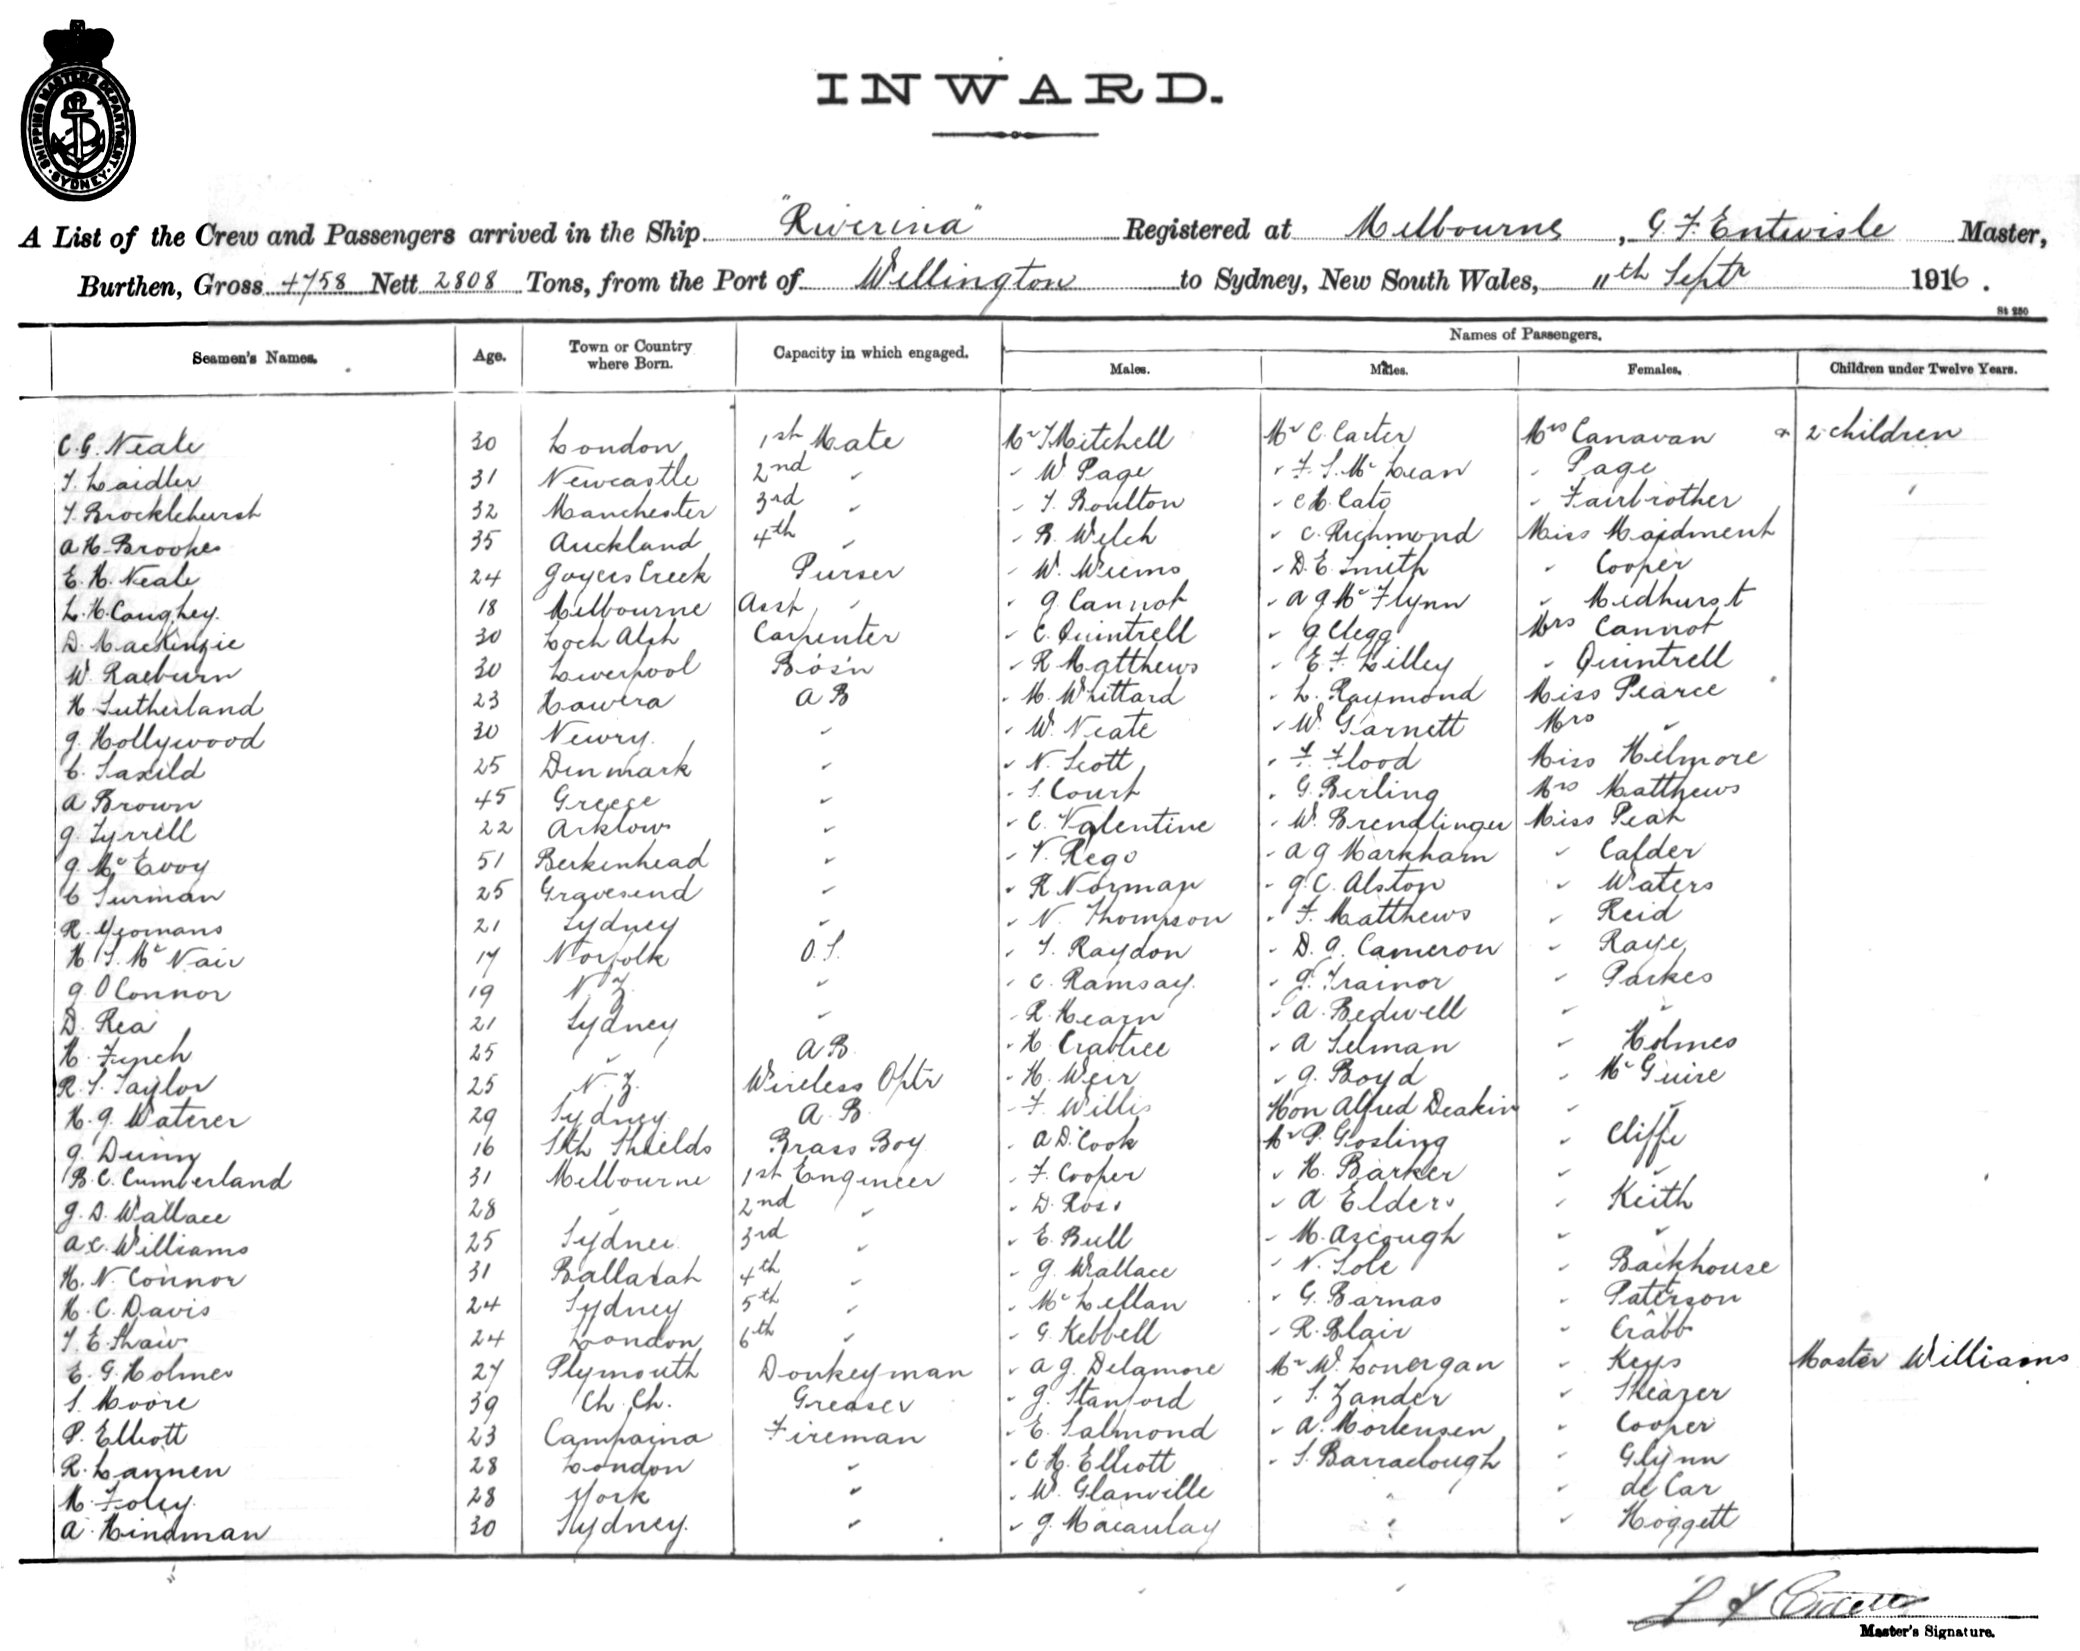 SHIPPING MASTERS DEPARTMENT
SYDNEY
INWARD.
A List of the Crew and Passengers arrived in the Ship "Riverina" Registered at Melbourne, G. F. Entwisle Master,
Burthen, Gross 4758 Nett 2808 Tons, from the Port of Wellington to Sydney, New South Wales, 11th Septr 1916.
St 250
Names of Passengers.
Seamen's Names. Age. Town or Country where Born. Capacity in which engaged. Males. Males. Females. Children under Twelve Years.
C. G. Neale 30 London 1st Mate Mr T Mitchell Mr C. Carter Mrs Canavan & 2 children
T. Laidler 31 Newcastle 2nd " " W Page " F. S. Mc Lean " Page
T. Brocklehurst 32 Manchester 3rd " " T. Boulton " C M. Cato " Fairbrother
A H. Brookes 35 Auckland 4th " " B. Welch " C. Richmond Miss Maidment
E. H. Neale 24 Joyces Creek Purser " W. Weems " D. E. Smith " Cooper
L. H. Caughey. 18 Melbourne Asst " " J Cannot " A J Mc Flynn " Midhurst
D. MacKinzie 30 Loch Alsh Carpenter " C. Quintrell " J Clegg Mrs Cannot
W. Raeburn 30 Liverpool Bos'n " R Matthews " E. F. Lilley " Quintrell
H. Sutherland 23 Hawera A B " H. Whittard " L. Raymond Miss Pearce
J. Hollywood 30 Newry. " " W. Neate " W. Garnett Mrs "
C. Saxild 25 Denmark " " N. Scott " F. Flood Miss Hilmore
A Brown 45 Greece " " S. Court " G. Berling Mrs Matthews
J. Tyrrell 22 Arklow " " C. Valentine " W. Brendlinger Miss Peat
J. Mc Evoy 51 Berkenhead " " V. Rego " A J Markham " Calder
C Surman 25 Gravesend " " R Norman " J. C. Alston " Waters
R. Yeomans 21 Sydney " " N. Thompson " F. Matthews " Reid
H. S. Mc Nair 17 Norfolk O. S. " T. Raydon " D. J. Cameron " Raye
J. O Connor 19 N. Z. " " C. Ramsay. " J. Trainor " Parkes
D. Rea 21 Sydney " " R. Hearn " A. Bedwell " "
H. Fynch 25 " A B. " H. Crabtree " A Selman " Holmes
R. S. Taylor 25 N. Z. Wireless Optr " H. Weir " J. Boyd " Mc Guire
H. J. Waterer 29 Sydney A. B. " F. Willis Hon Alfred Deakin " "
J. Dunn 16 Sth Shields Brass Boy " A D. Cook Mr P. Gosling " Cliffe
B. C. Cumberland 31 Melbourne 1st Engineer " F. Cooper " H. Barker " "
J. D. Wallace 28 " 2nd " " D. Ross " A Elders " Keith
A. C. Williams 25 Sydney 3rd " " E. Bull " M. Ascough " "
H. N. Connor 31 Ballarat 4th " " J. Wallace " N. Sole " Backhouse
H. C. Davis 24 Sydney 5th " " Mc Lellan " G. Barnas " Paterson
T. E. Shaw 24 London 6th " " G. Kebbell " R. Blair " Crabb
E. G. Holmes 27 Plymouth Donkeyman " A J. Delamore Mr W. Lonergan " Keys Master Williams
S. Moore 39 Ch. Ch. Greaser " J. Stanford " S. Zander " Shearer
P. Elliott 23 Campaina Fireman " E. Salmond " A. Mortensen " Cooper
R. Lannen 28 London " " C H. Elliott " S. Barraclough " Glynn
M. Foley. 28 York " " W. Glanville " de Car
A. Hindman 30 Sydney. " " J. Macaulay " Hoggett
Master's Signature.